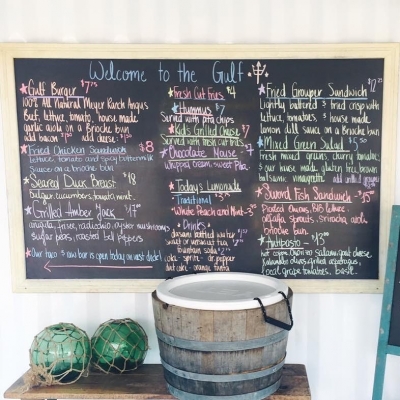 Welcome to the Gulf
Gulf Burger $7.75
100% All Natural Meyer Ranch Angus
Beef, lettuce, tomato, house made
garlic aiola on a Brioche bun
add bacon add cheese
Fried Chicken Sandwich $8
lettuce, tomato and spicy buttermilk
sauce on a brioche bun
Seared Duck Breast $18
Bulgur, cucumbers, tomato, mint
Grilled Amber Jack
frisee, radicchio, oyster mushrooms
sugar peas, roasted bell peppers
Our taco & raw bar is open today on west deck!
Fresh Cut Fries $4
Hummus $7
Served with pita chips
Kids Grilled Cheese $7
Served with fresh cut fries
Chocolate Mousse $7
whipped cream, sweet
Todays Lemonade
Traditional
White Peach and Mint
Drinks
dasani bottled water
sweet or unsweet tea
fountain soda
coke - sprite - dr. pepper
diet coke - orange fanta
Fried Grouper Sandwich
Lightly battered & fried crisp with
lettuce, tomato & house made
lemon dill sauce on a Brioche bun
Mixed Green Salad
fresh mixed greens, cherry tomatoes,
sugar peas, gluten free brown
balsamic vinaigrette
Sword Fish Sandwich
Pickled Onions, Bib lettuce,
alfalfa sprouts, sriracha aiola
brioche bun
Antipasto
salami, goat cheese
kalamata olives, grilled asparagus,
local grape tomatoes, basil.